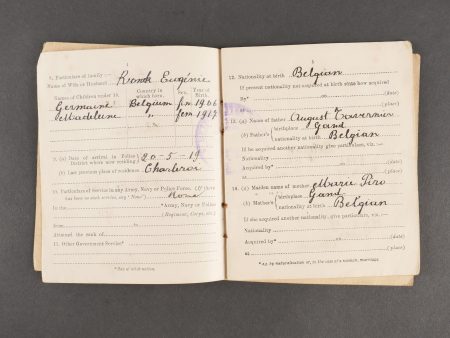 7. Particulars of family :—
Name of Wife or Husband Ronk Eugénie
Names of Children under 16. Country in which born. Sex. Year of Birth.
Germaine Belgium fem 1906
Madeleine " fem 1917
9. (a) Date of arrival in Police District where now residing 20-5-19
(b) Last previous place of residence Charleroi
10. Particulars of Service in any Army, Navy or Police Force. (If there has been no such service, say "None") None
Army, Navy or Police
(Regiment, Corps, etc.)
Attained the rank of
11. Other Government Service*
12. Nationality at birth Belgian
If present nationality not acquired at birth state how acquired
By* on (date)
at (place)
13. (a) Name of father August Tavernier
(b) Father's birthplace Gand
nationality at birth Belgian
If he acquired another nationality give particulars, viz. :—
Nationality
Acquired by* on (date)
at (place)
14. (a) Maiden name of mother Marie Piro
(b) Mother's birthplace Gand
nationality at birth Belgian
If she acquired another nationality, give particulars, viz. :—
Nationality
Acquired by* on (date)
at (place)